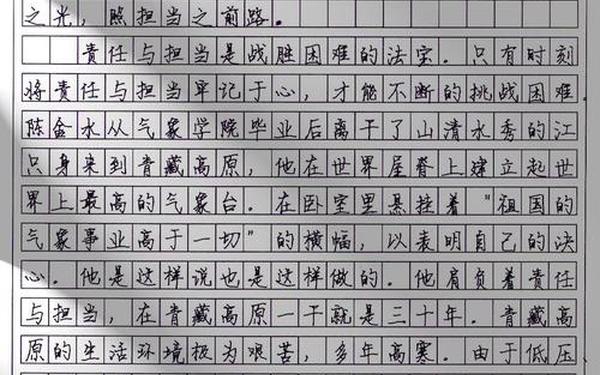 之光，照担当之前路.
责任与担当是战胜困难的法宝. 只有时刻
将责任与担当牢记于心，才能不断的挑战困难.
陈金水从气象学院毕业后离干了山清水秀的江
只身来到青藏高原，他在世界屋脊上建立起世
界上最高的气象台. 在卧室里悬挂着"祖国的
气象事业高于一切"的横幅，以表明自己的决
心. 他是这样说也是这样做的. 他肩负着责任
与担当，在青藏高原一干就是三十年. 青藏高
原的生活环境极为艰苦，多年高寒. 由于低压、